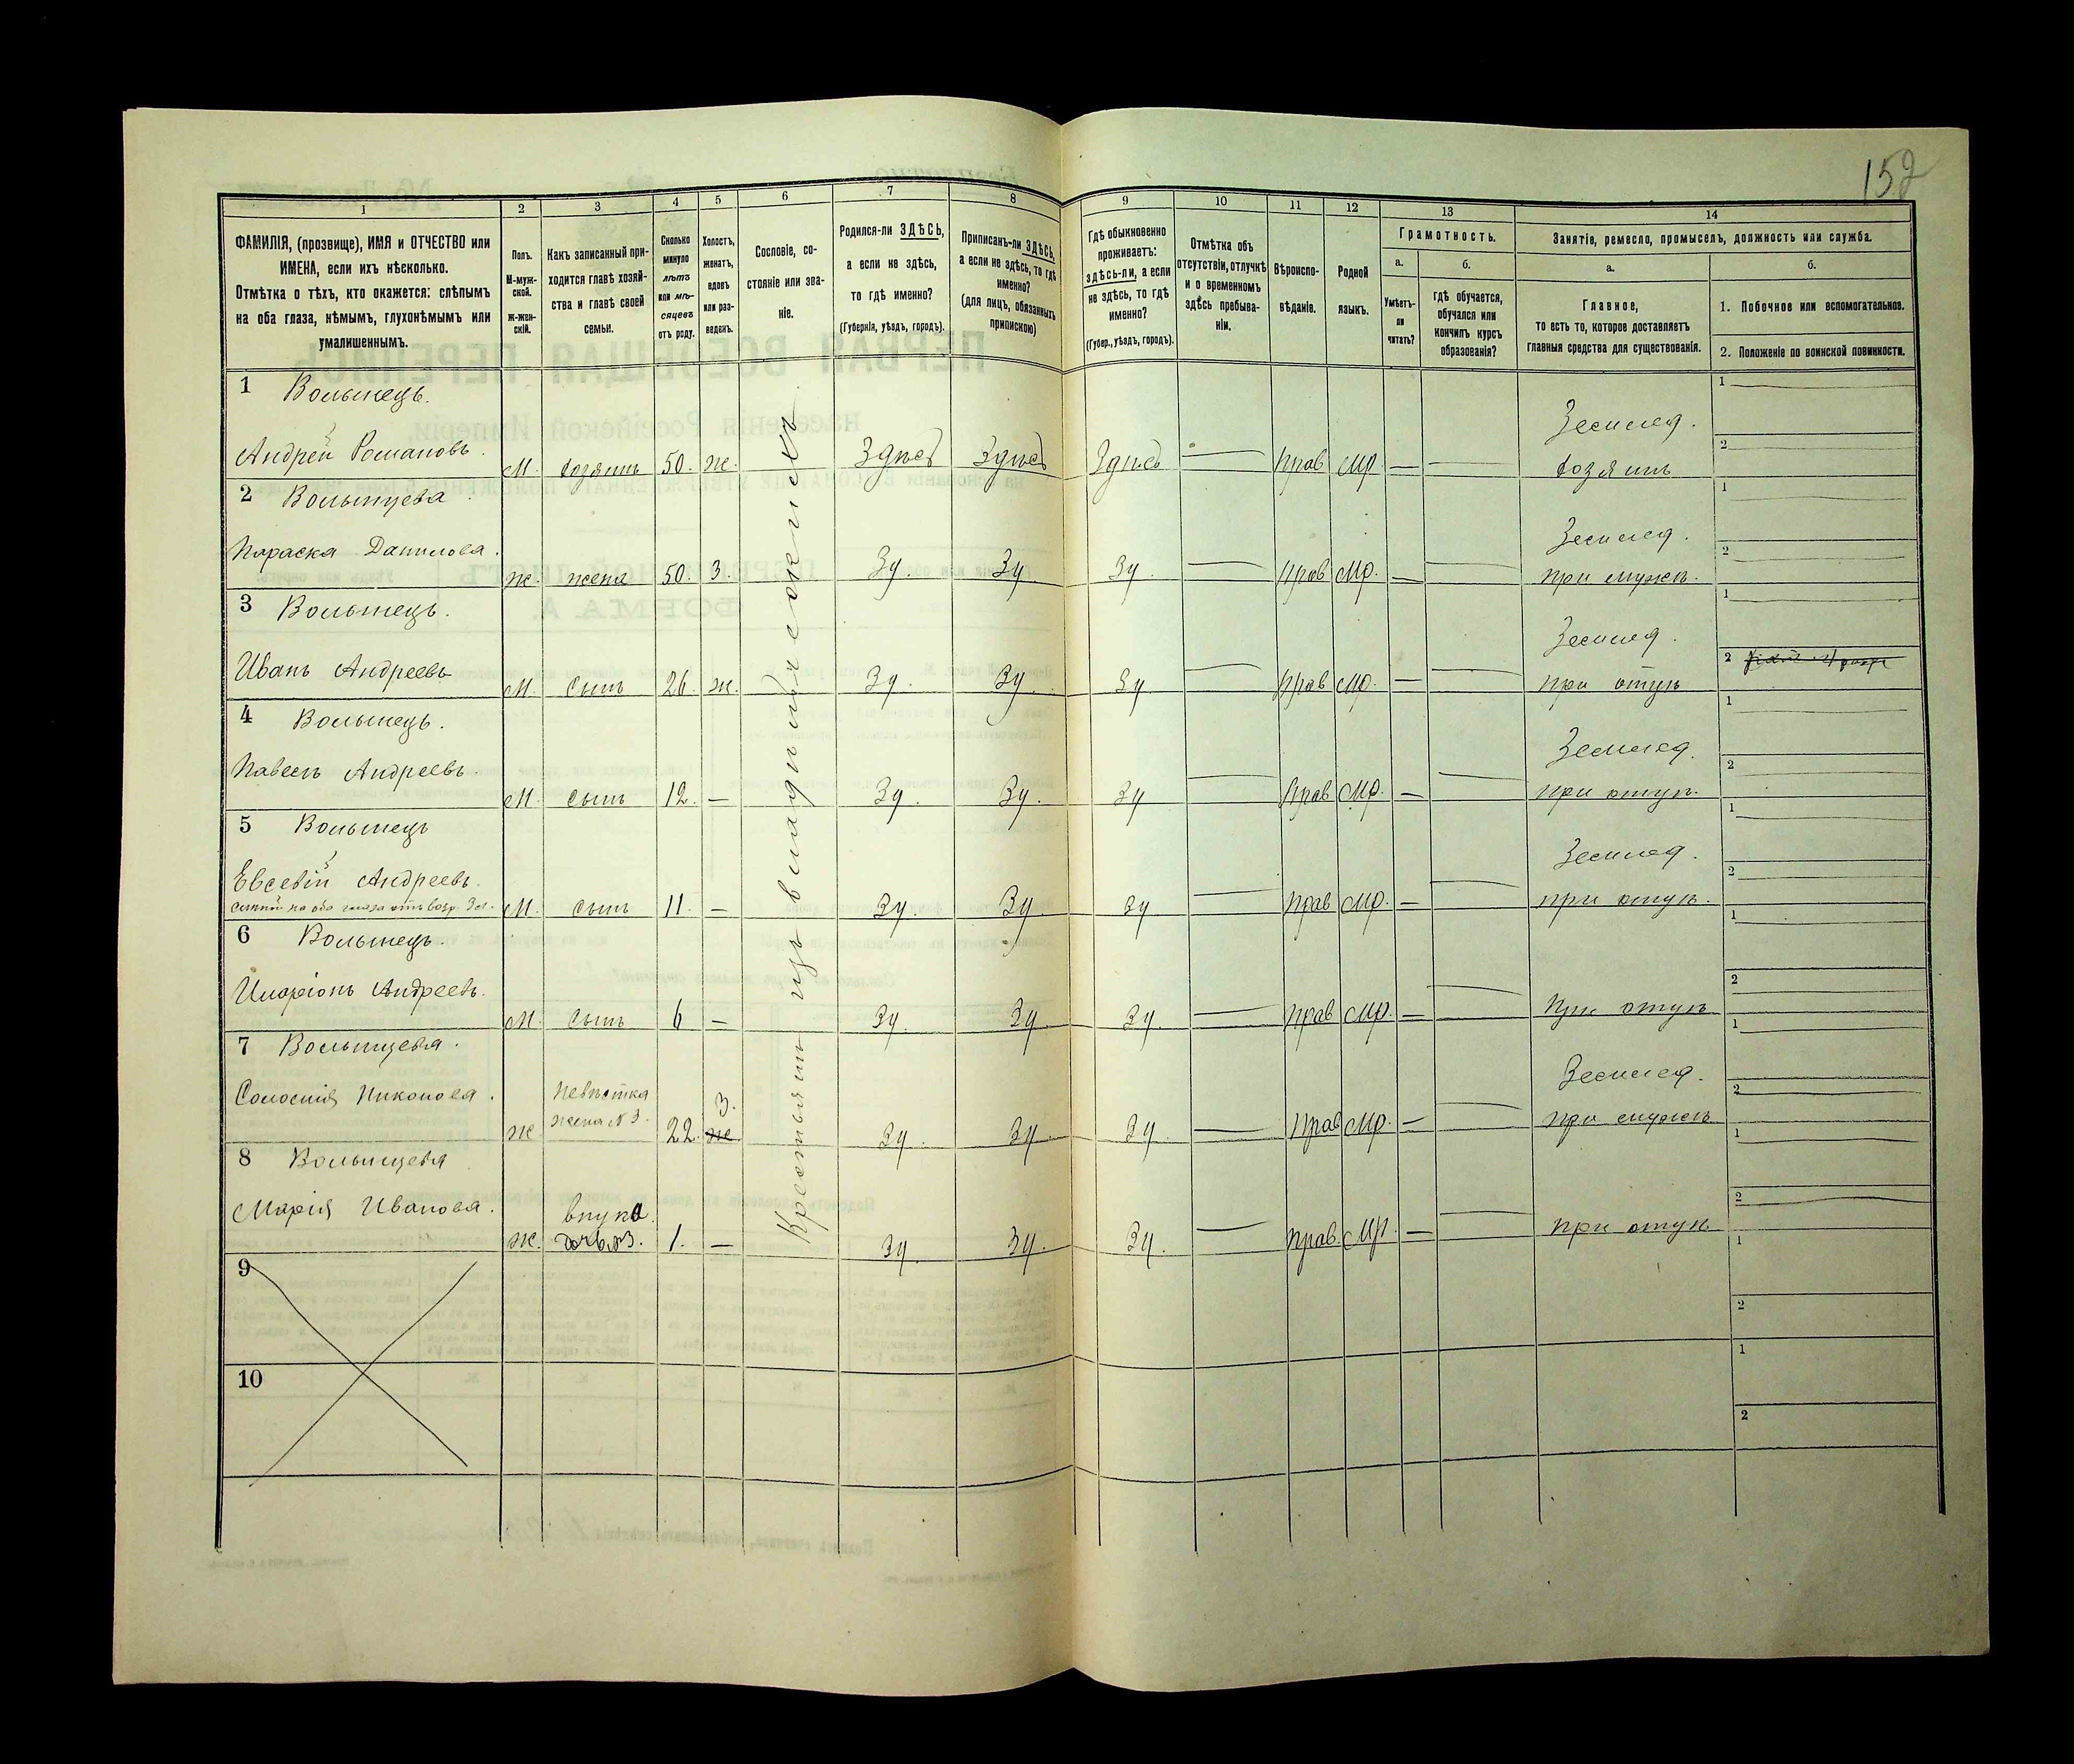 152
1
2
3
4
5
6
7
8
9
10
11
12
13
14
ФАМИЛІЯ, (прозвище), ИМЯ и ОТЧЕСТВО или
ИМЕНА, если ихъ нѣсколько.
Отмѣтка о тѣхъ, кто окажется: слѣпымъ
на оба глаза, нѣмымъ, глухонѣмымъ или
умалишеннымъ.
Полъ.
М-муж-
ской.
Ж-жен-
скій.
Какъ записанный при-
ходится главѣ хозяй-
ства и главѣ своей
семьи.
Сколько
минуло
лѣтъ
или мѣ-
сяцевъ
отъ роду.
Холостъ,
женатъ,
вдовъ
или раз-
веденъ.
Сословіе, со-
стояніе или зва-
ніе.
Родился-ли ЗДѢСЬ,
а если не здѣсь,
то гдѣ именно?
(Губернія, уѣздъ, городъ).
Приписанъ-ли ЗДѢСЬ,
а если не здѣсь, то гдѣ
именно?
(для лицъ, обязанныхъ
припискою)
Гдѣ обыкновенно
проживаетъ:
здѣсь-ли, а если
не здѣсь, то гдѣ
именно?
(Губер., уѣздъ, городъ).
Отмѣтка объ
отсутствіи, отлучкѣ
и о временномъ
здѣсь пребыва-
ніи.
Вѣроиспо-
вѣданіе.
Родной
языкъ.
Грамотность.
а.
Умѣетъ-
ли
читать?
б.
Гдѣ обучается,
обучался или
кончилъ курсъ
образованія?
Занятіе, ремесло, промыселъ, должность или служба.
а.
Главное,
то есть то, которое доставляетъ
главныя средства для существованія.
б.
1. Побочное или вспомогательное.
2. Положеніе по воинской повинности.
Крестьянинъ владѣлецъ
1 Волынецъ.
Земмед.
Андрей Романовъ. М. хозяинъ 50. ж. Здѣсь Здѣсь Здѣсь — Прав Мр. — — хозяинъ
2 Волынцева
Земмед.
Параска Данилова. Ж. жена 50. З. Зд. Зд. Зд. — Прав Мр. — — при мужѣ.
3 Волынецъ.
Земмед.
Иванъ Андреевъ М. Сынъ 26. ж. Зд. Зд. Зд — Прав Мр. — — при отцѣ
4 Волынецъ.
Земмед.
Павелъ Андреевъ. М. Сынъ 12. — Зд. Зд. Зд — Прав Мр. — — при отцѣ.
5 Волынецъ
Земмед.
Евсевій Андреевъ.
слѣпой на оба глаза отъ возр. 3 л. М. сынъ 11. — Зд. Зд. Зд — Прав Мр. — — при отцѣ.
6 Волынецъ.
Иларіонъ Андреевъ. М. Сынъ 6 — Зд. Зд. Зд — Прав Мр. — — При отцѣ
7 Волынцева.
Земмед.
Соломія Никонова. Невѣстка З.
Ж жена №3. 22. ж Зд. Зд. Зд — Прав Мр. — — при мужѣ
8 Волынцева
Марія Иванова. внука.
Ж. дочь №3. 1. — Зд. Зд. Зд. — Прав. Мр. — — при отцѣ
9
10
1
2
1
2
1
2
1
2
1
2
1
2
1
2
1
2
1
2
1
2